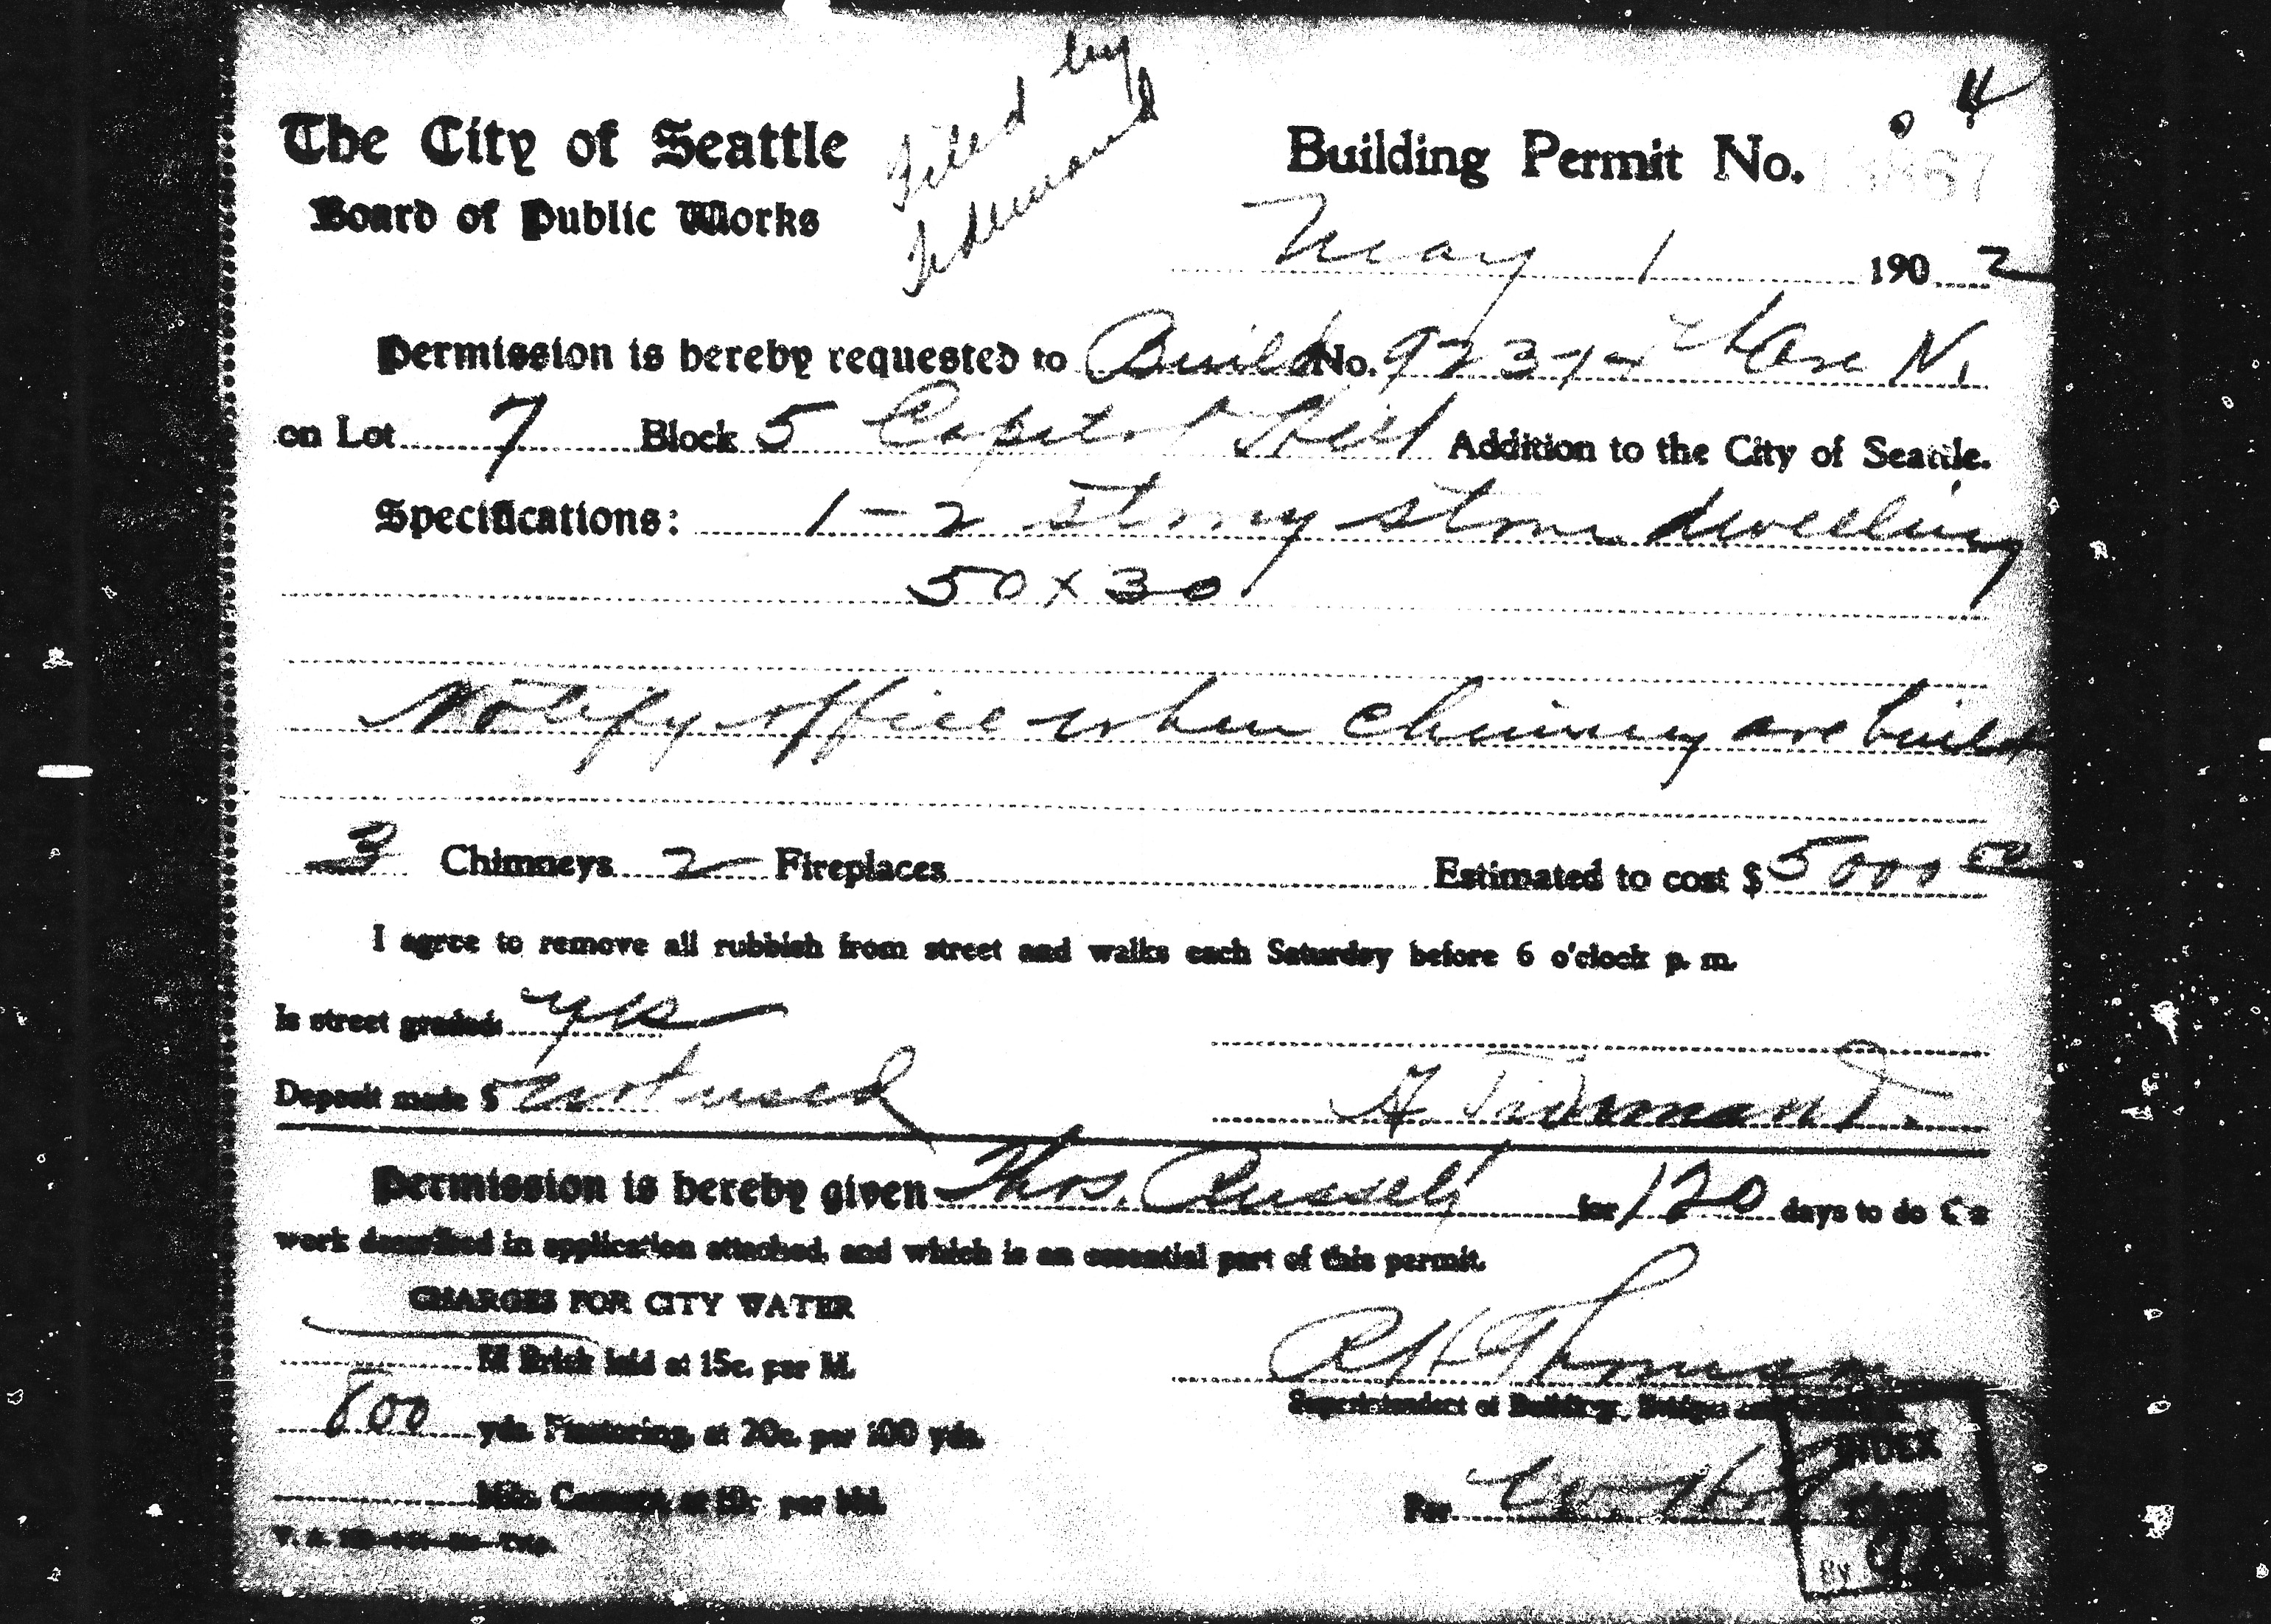 Filed by
Tidemand
The City of Seattle
Board of Public Works
Building Permit No.
May 1 1902
Permission is hereby requested to Build No. 923 Ave N.
on Lot 7 Block 5 Capitol Hill Addition to the City of Seattle.
Specifications: 1-2 story stone dwelling
50 x 30
Notify office when chimney are built
3 Chimneys 2 Fireplaces Estimated to cost $ 5000 00
I agree to remove all rubbish from street and walks each Saturday before 6 o'clock p. m.
Is street graded: yes
Deposit made $ not used
Tidemand
Permission is hereby given Thos. Russell for 120 days to do the
work described in application attached, and which is an essential part of this permit.
CHARGES FOR CITY WATER
M Brick laid at 15c. per M.
800 yds. Plastering, at 20c. per 100 yds.
R H Thomson
Superintendent of Buildings, Bridges and
Cement, at per bbl.
Per
INDEX
BY